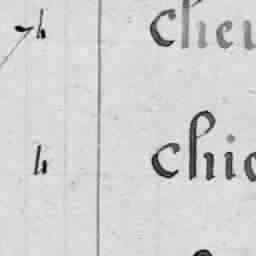 h cheu
h chic